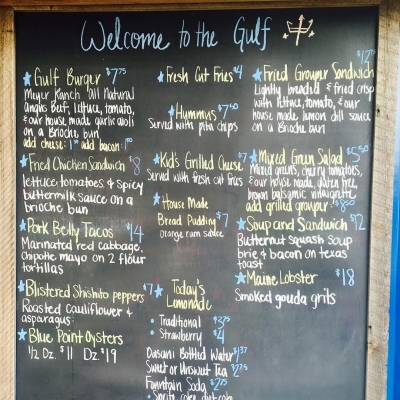 Welcome to the Gulf
Gulf Burger $7.75
Meyer Ranch all Natural
angus Beef, lettuce, tomato,
& our house made garlic aioli
on a Brioche bun
add cheese: 1.00 add bacon: 1.00
Fried Chicken Sandwich $8
lettuce, tomatoes & spicy
buttermilk sauce on a
brioche bun
Pork Belly Tacos $14
Marinated red cabbage,
chipotle mayo on 2 flour
tortillas
Blistered Shishito peppers $7
Roasted Cauliflower &
asparagus
Blue Point Oysters
1/2 Dz. $11 Dz. $19
Fresh Cut Fries $4
Hummus $7.50
Served with pita chips
Kid's Grilled Cheese $7
Served with fresh cut fries
House Made
Bread Pudding $7
orange rum sauce
Today's
Lemonade
Traditional $3.75
Strawberry $4
Dasani Bottled Water
Sweet or Unsweet Tea $2.75
Fountain Soda $2.75
Sprite, coke, diet coke
Fried Grouper Sandwich
Lightly breaded & fried crisp
with lettuce, tomato, & our
house made lemon dill sauce
on a Brioche Bun
Mixed Green Salad $5.50
Mixed greens, cherry tomatoes,
& our house made, gluten free,
brown balsamic vinaigrette
add grilled grouper $8.50
Soup and Sandwich $12
Butternut squash soup
brie & bacon on texas
toast
Maine Lobster $18
Smoked gouda grits